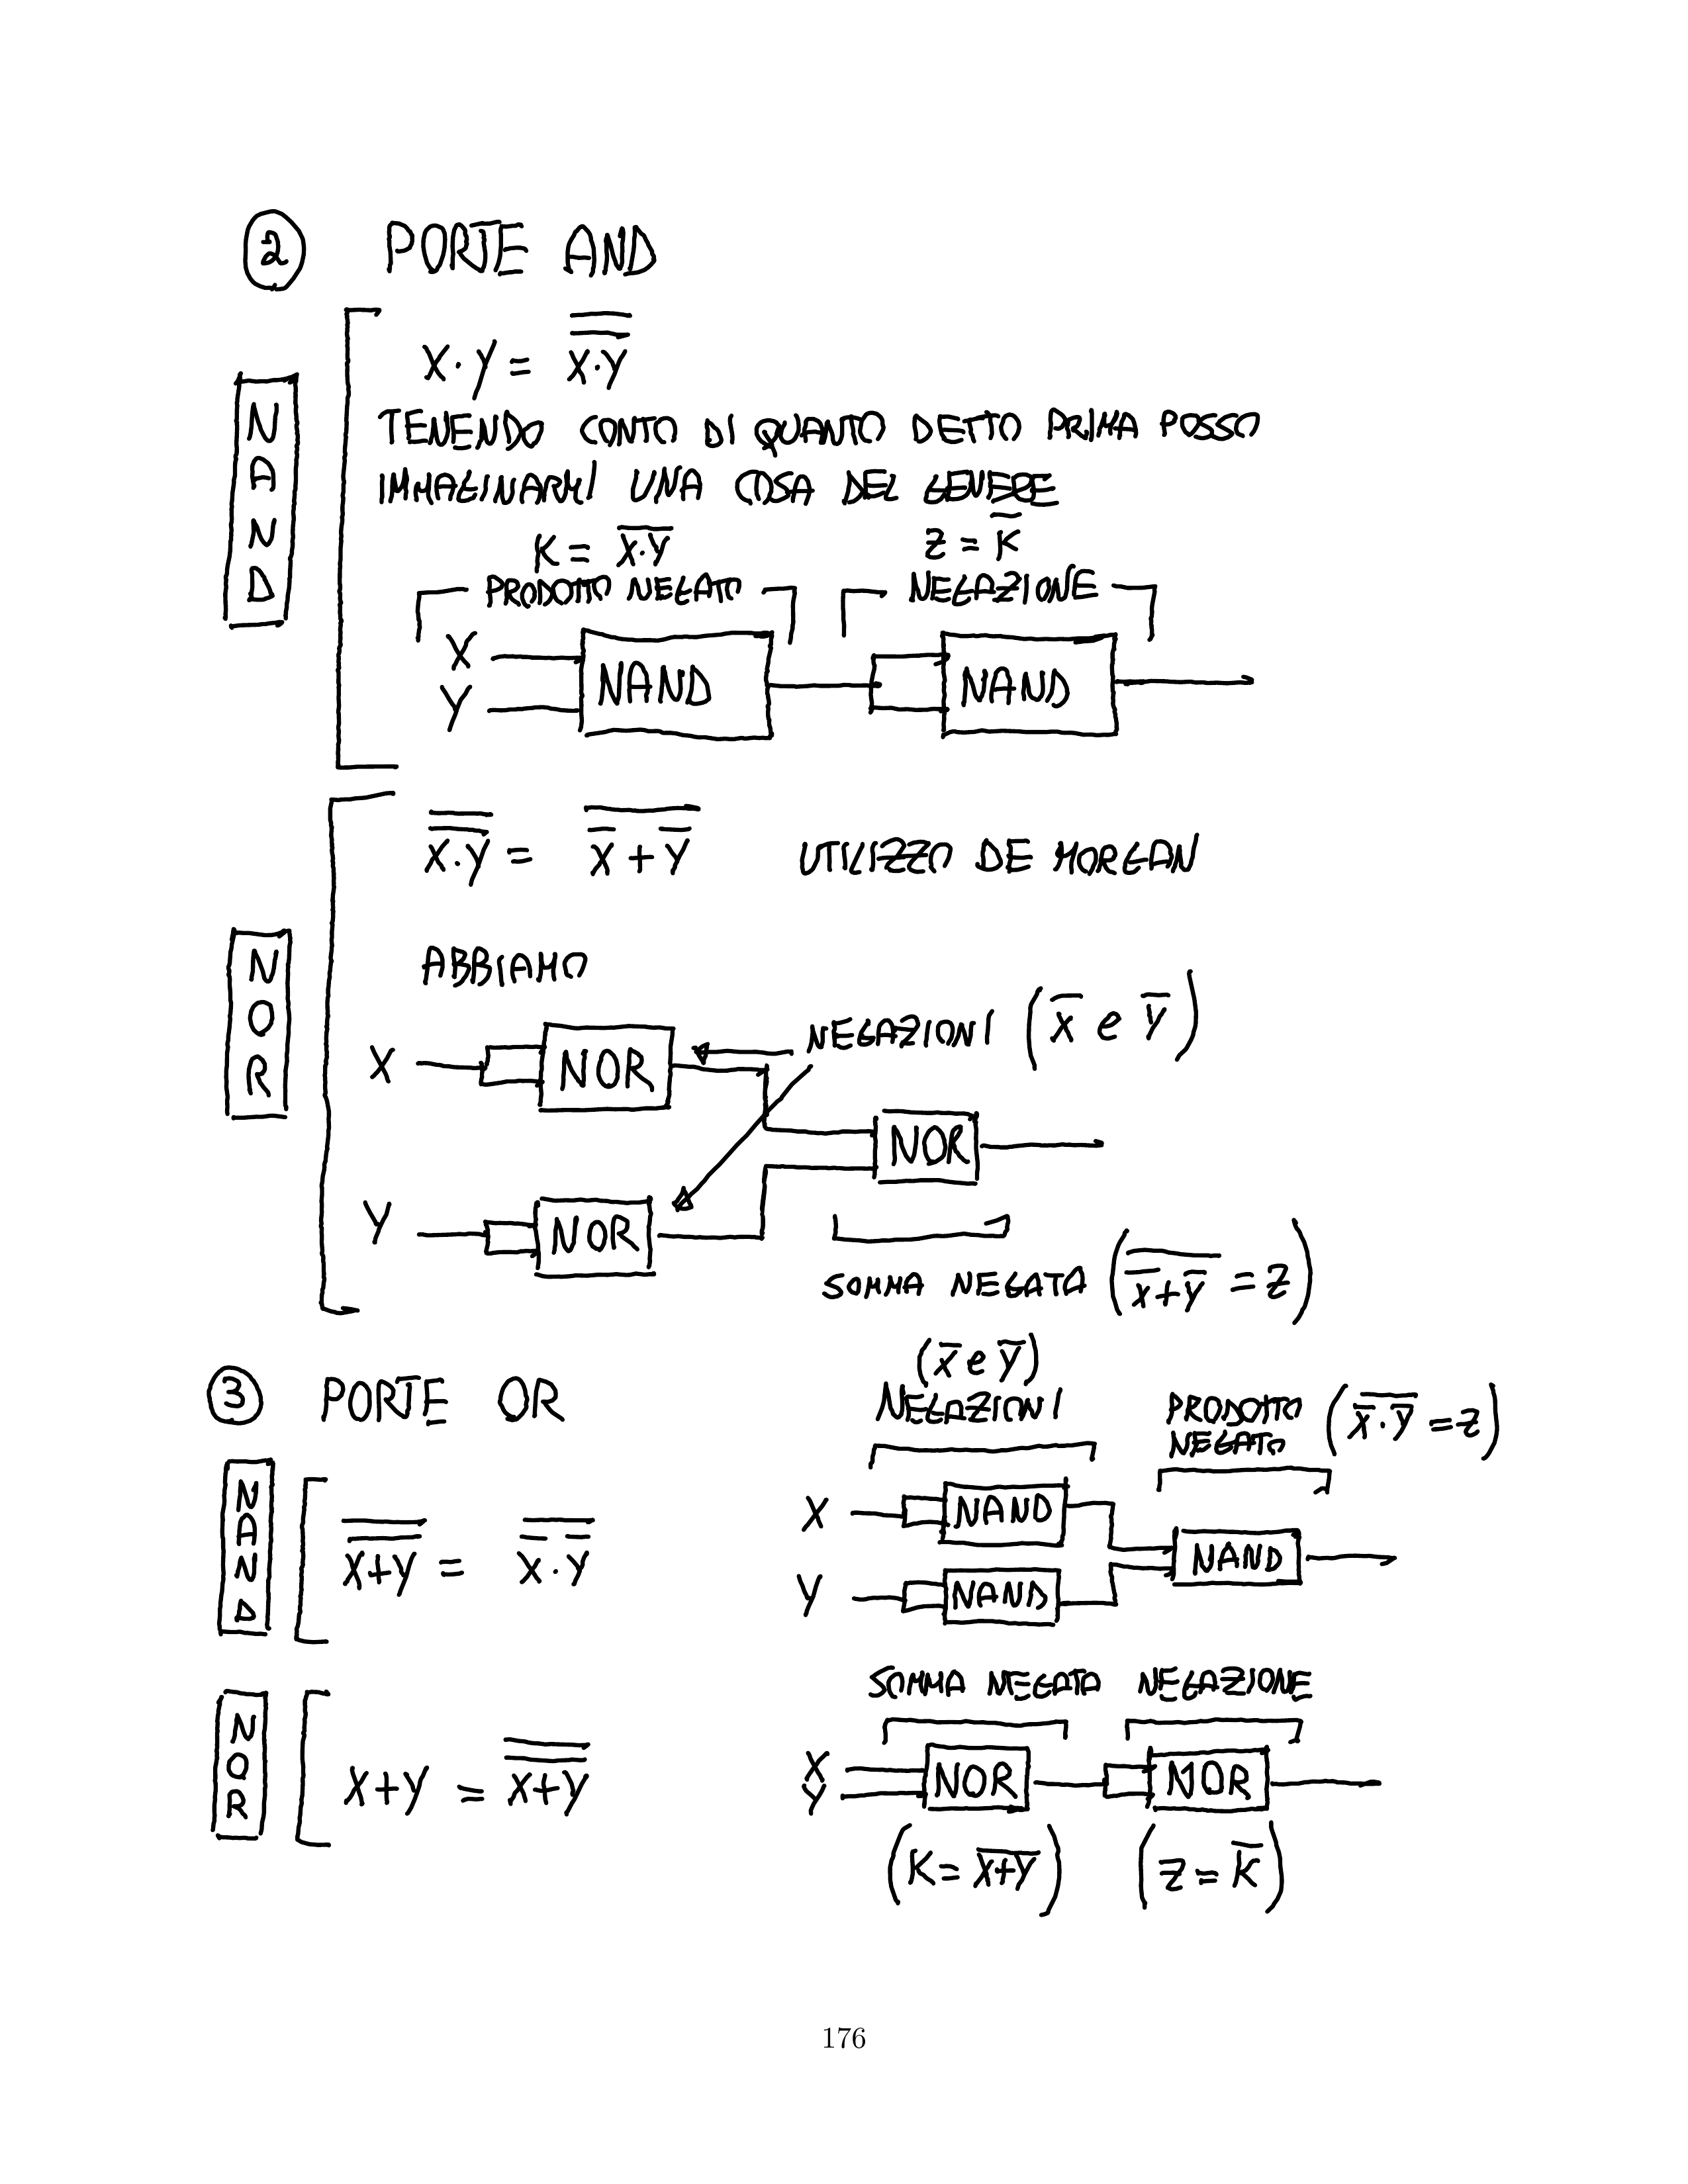 ② PORTE AND
NAND
x·y = \overline{\overline{x·y}}
TENENDO CONTO DI QUANTO DETTO PRIMA POSSO
IMMAGINARMI UNA COSA DEL GENERE
K = \overline{x·y}
z = \overline{K}
PRODOTTO NEGATO
NEGAZIONE
X
Y
NAND
NAND
NOR
\overline{\overline{x·y}} = \overline{\overline{x} + \overline{y}} UTILIZZO DE MORGAN
ABBIAMO
NEGAZIONI (\overline{x} e \overline{y})
X
NOR
NOR
Y
NOR
SOMMA NEGATA (\overline{\overline{x}+\overline{y}} = z)
③ PORTE OR
(\overline{x} e \overline{y})
NEGAZIONI
PRODOTTO
NEGATO
(\overline{\overline{x}·\overline{y}} = z)
NAND
\overline{\overline{x+y}} = \overline{\overline{x}·\overline{y}}
X
NAND
Y
NAND
NAND
SOMMA NEGATA NEGAZIONE
NOR
x+y = \overline{\overline{x+y}}
X
Y
NOR
NOR
(K = \overline{x+y})
(z = \overline{K})
176